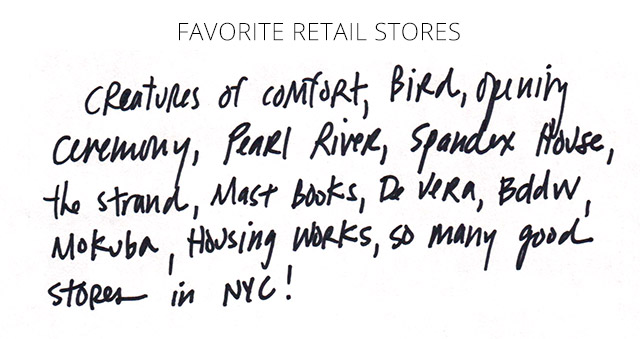 FAVORITE RETAIL STORES
Creatures of Comfort, Bird, opening
ceremony, Pearl River, Spandex House,
the strand, Mast Books, De Vera, Bddw,
Mokuba, Housing Works, so many good
stores in NYC!